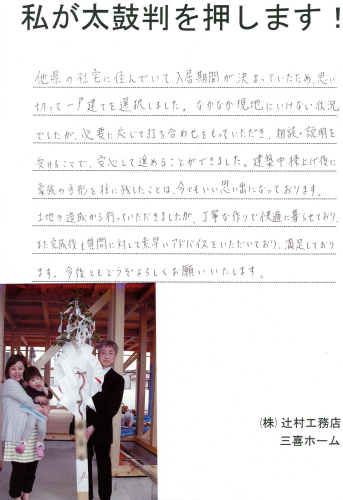 私が太鼓判を押します！
他県の社宅に住んでいて入居期間が決まっていたため、思い
切って一戸建てを選択しました。なかなか現地にいけない状況
でしたが、必要に応じて打ち合わせをもっていただき、相談・説明を
受けることで、安心して進めることができました。建築中棟上げ後に
家族の手形を柱に残したことは、今でもいい思い出になっております。
土地の造成から行っていただきましたが、丁寧な作りで快適に暮らせており、
また完成後も質問に対して素早いアドバイスをいただいており、満足しており
ます。今後ともどうぞよろしくお願いいたします。
(株)辻村工務店
三喜ホーム